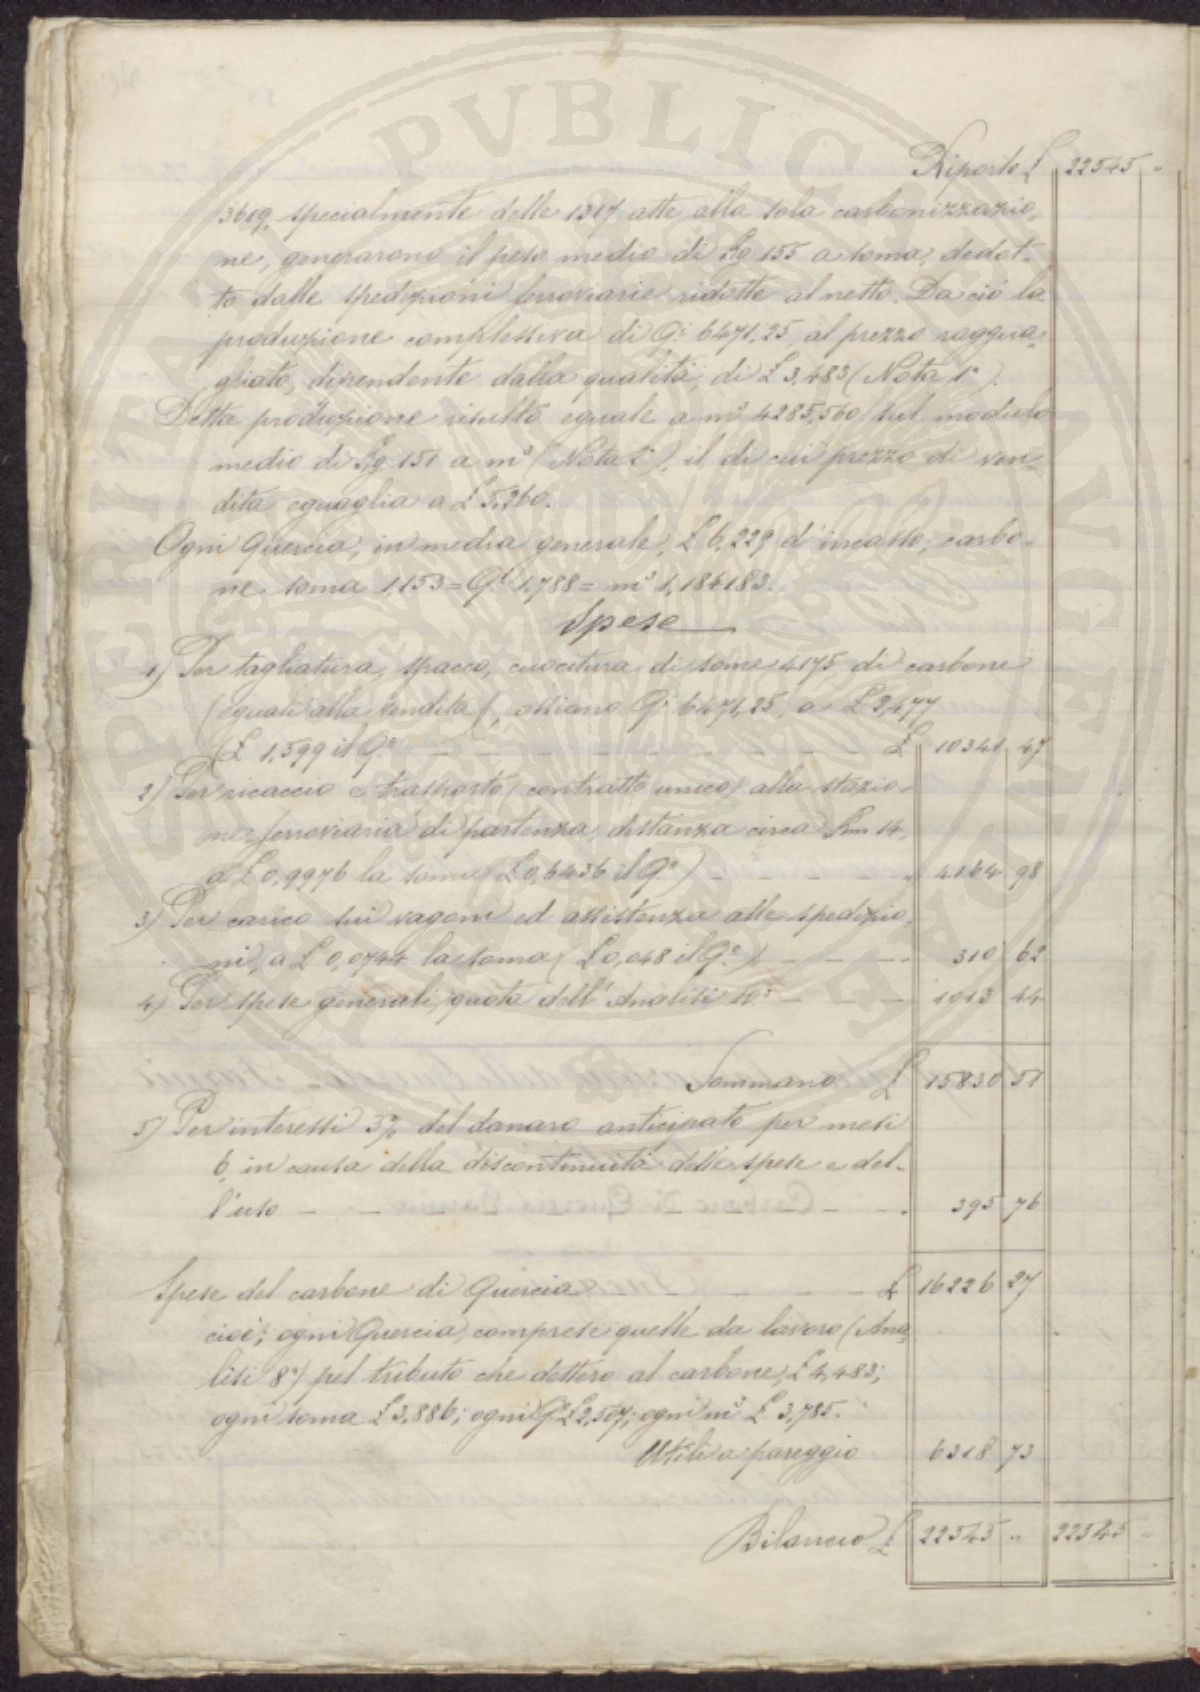 Riporto £ 22545 "
3619, specialmente delle 1317 atte alla sola carbonizzazio-
ne, generarono il peso medio di Kg 155 a soma, dedot-
to dalle spedizioni ferroviarie ridotte al netto. Da ciò la
produzione complessiva di Qi 6471,25, al prezzo raggua-
gliato, dipendente dalla qualità, di £ 3,483 (Nota 1a).
Detta produzione risultò eguale a m3 4285,560 sul modulo
medio di Kg 151 a m3 (Nota 2a), il di cui prezzo di ven-
dita eguaglia a £ 5,260.
Ogni Quercia, in media generale, £ 6,229 d'incasso; carbo-
ne soma 1,153 = Ql 1,788 = m3 1,184183.
Spese
1) Per tagliatura, spacco, cuocitura di some 4175 di carbone
(eguali alla vendita), ossiano Qi 6471,25, a £ 2,477
(£ 1,599 il Qe - - - £ 10341 47
2) Per ricaccio e trasporto (contratto unico) alla stazio-
ne ferroviaria di partenza, distanza circa Km 14,
a £ 0,9976 la soma (£ 0,6436 il Qe) - - - " 4164 98
3) Per carico sui vagoni ed assistenza alle spedizio-
ni, a £ 0,0744 la soma (£ 0,048 il Qe) - - - " 310 62
4) Per spese generali, quota dell'Analisi 10a - - - " 1013 44
Sommano £ 15830 51
5) Per interessi 5% del danaro anticipato per mesi
6, in causa della discontinuità delle spese e del-
l'uso - - - " 395 76
Spese del carbone di Quercia - - - £ 16226 27
cioè; ogni Quercia, comprese quelle da lavoro (Ana-
lisi 8a) pel tributo che dettero al carbone, £ 4,483;
ogni soma £ 3,886; ogni Qe £ 2,507; ogni m3 £ 3,785.
Utili a pareggio 6318 73
Bilancio £ 22545 " 22545 "
PERITAT PUBLIC